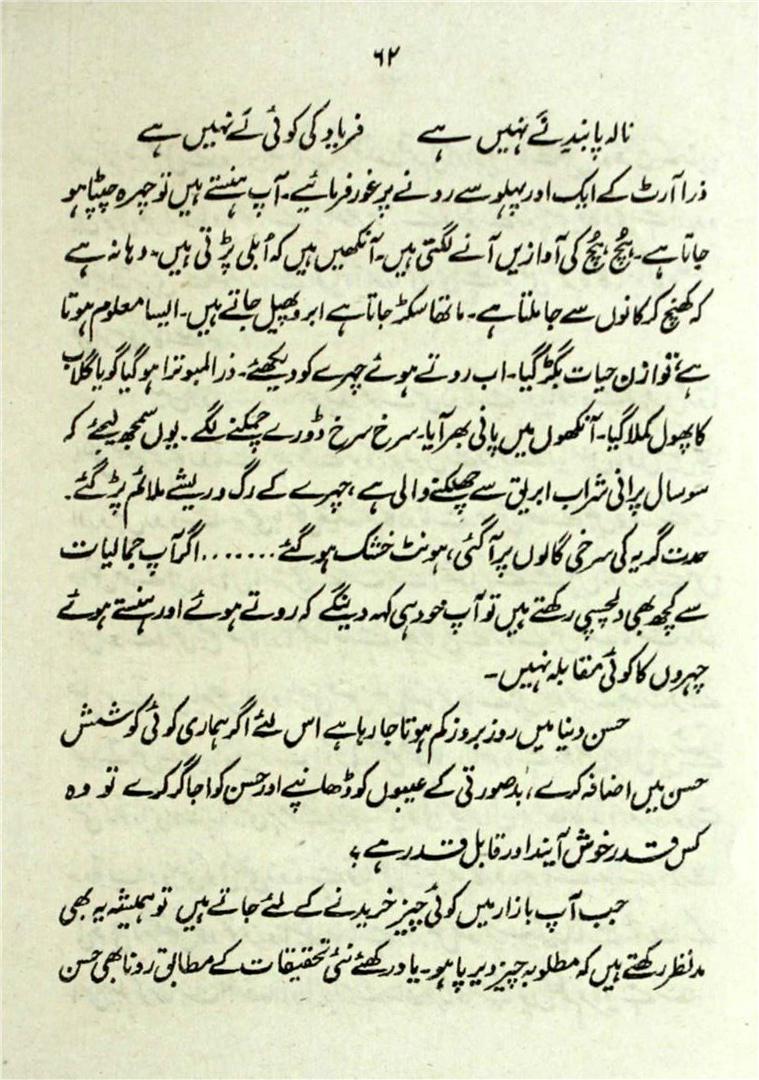 ۶۲
نالہ پابندِ نَے نہیں ہے فریاد کی کوئی لَے نہیں ہے
ذرا آرٹ کے ایک اور پہلو سے رونے پر غور فرمائیے۔ آپ ہنستے ہیں تو چہرہ چپٹا ہو
جاتا ہے۔ ہُچ ہُچ کی آوازیں آنے لگتی ہیں۔ آنکھیں ہیں کہ اُبلی پڑتی ہیں۔ دہانہ ہے
کہ کھنچ کر کانوں سے جا ملتا ہے۔ ماتھا سکڑ جاتا ہے ابرو پھیل جاتے ہیں۔ ایسا معلوم ہوتا
ہے، توازن حیات بگڑ گیا۔ اب روتے ہوئے چہرے کو دیکھئے۔ ذرا لمبوترا ہو گیا گویا گلاب
کا پھول کملا گیا۔ آنکھوں میں پانی بھر آیا۔ سرخ سرخ ڈورے چمکنے لگے۔ یوں سمجھ لیجئے کہ
سو سال پرانی شراب ابریق سے چھلکنے والی ہے، چہرے کے رگ و ریشے ملائم پڑ گئے۔
حدت گریہ کی سرخی گالوں پر آ گئی، ہونٹ خشک ہو گئے ....... اگر آپ جمالیات
سے کچھ بھی دلچسپی رکھتے ہیں تو آپ خود ہی کہہ دینگے کہ روتے ہوئے اور ہنستے ہوئے
چہروں کا کوئی مقابلہ نہیں۔
حسن دنیا میں روز بروز کم ہوتا جا رہا ہے اس لئے اگر ہماری کوئی کوشش
حسن میں اضافہ کرے، بدصورتی کے عیبوں کو ڈھانپے اور حسن کو اجاگر کرے تو وہ
کس قدر خوش آیند اور قابل قدر ہے؟
جب آپ بازار میں کوئی چیز خریدنے کے لئے جاتے ہیں تو ہمیشہ یہ بھی
مدنظر رکھتے ہیں کہ مطلوبہ چیز دیرپا ہو۔ یاد رکھئے نئی تحقیقات کے مطابق رونا بھی حسن